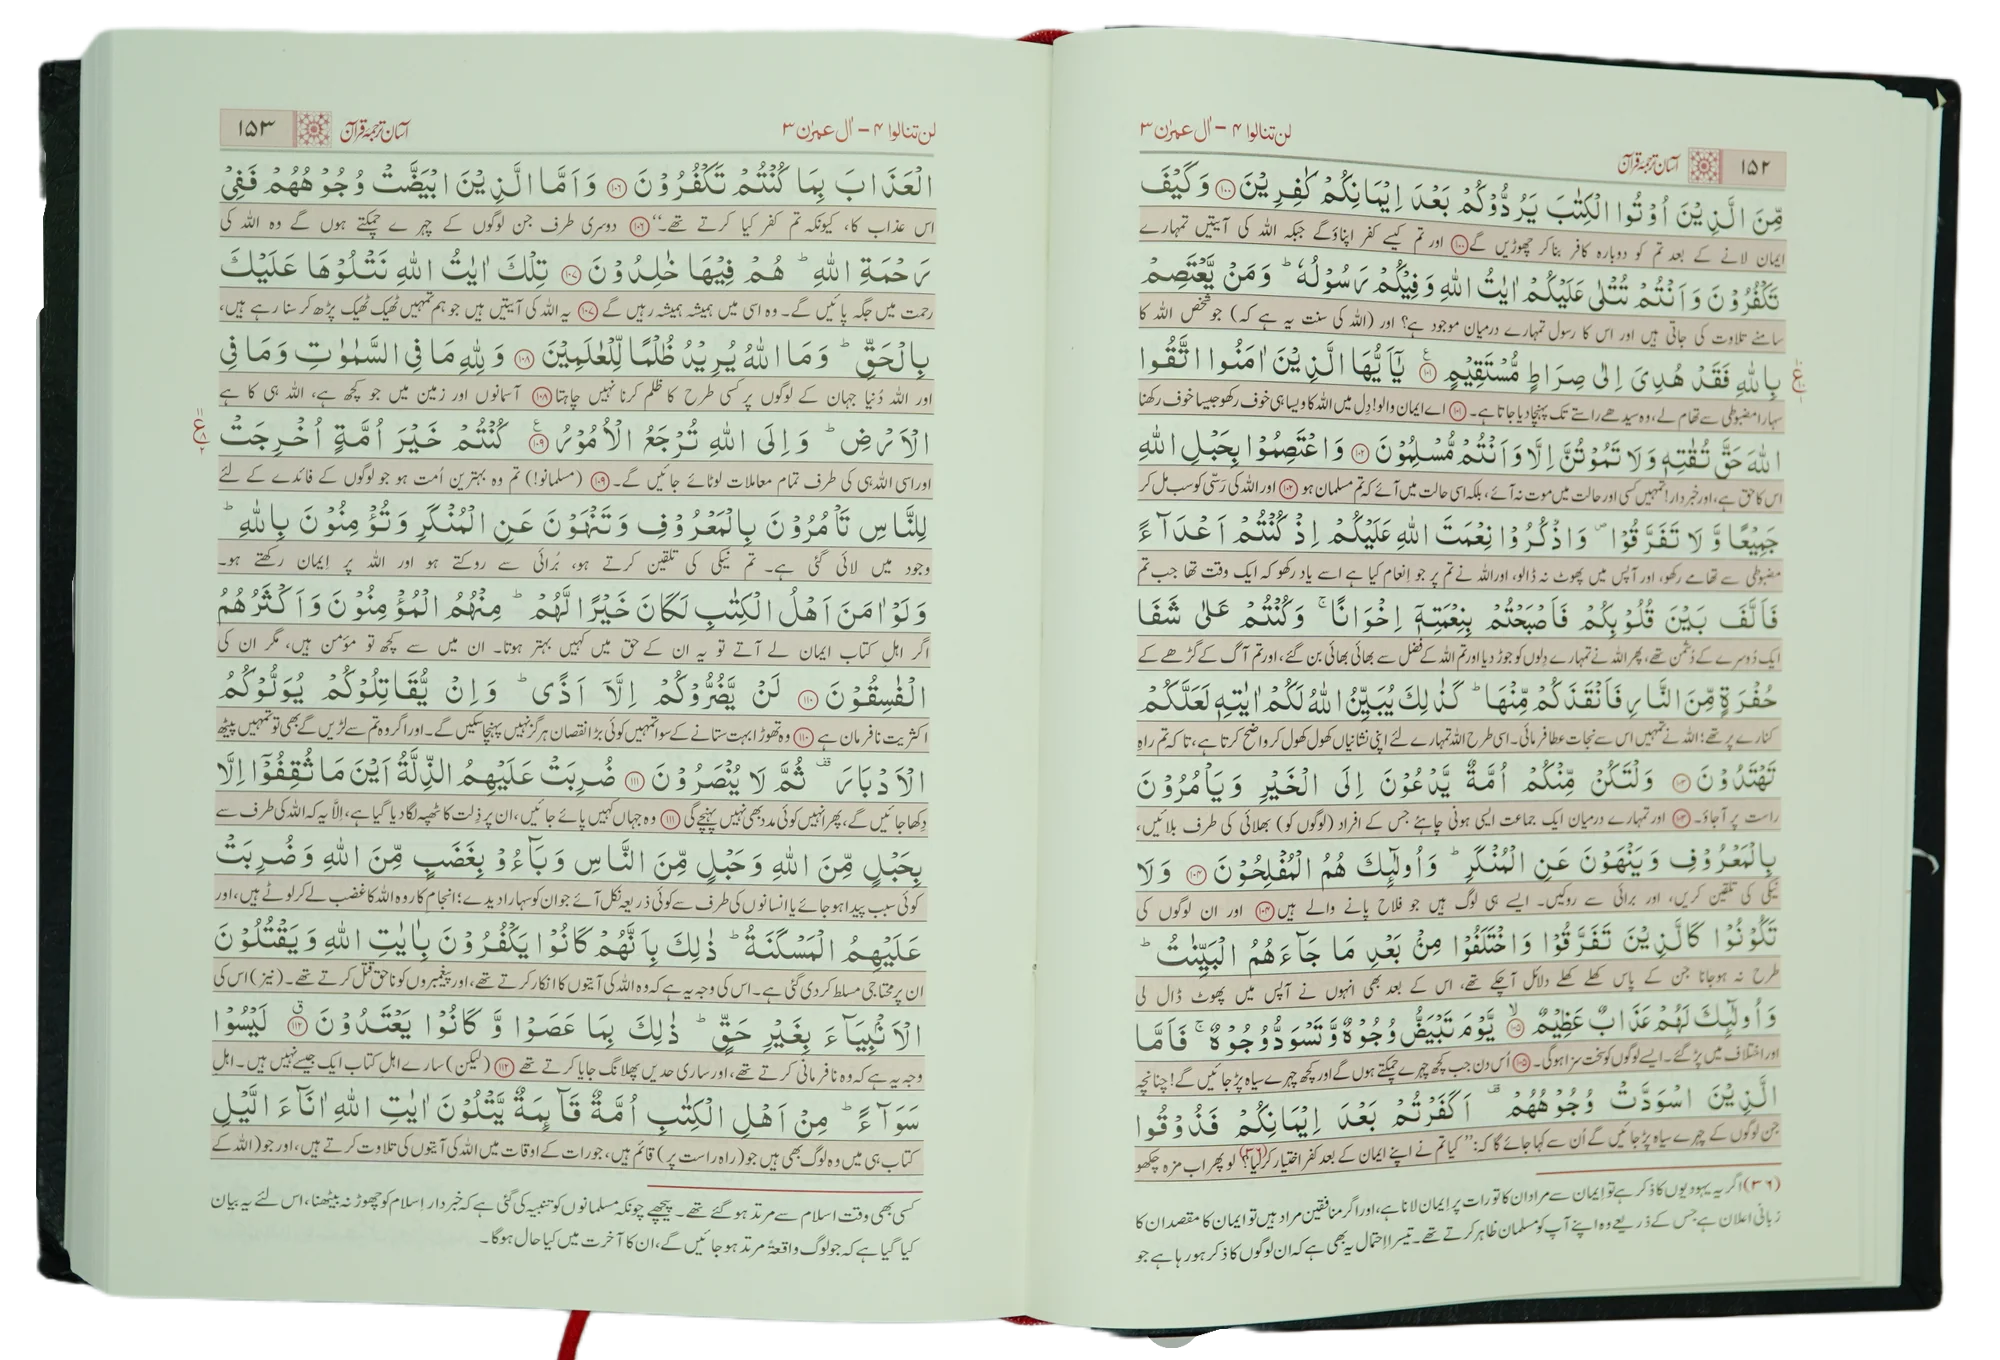 لن تنالوا ۴ – اٰل عمرٰن ۳
آسان ترجمۂ قرآن
۱۵۲
مِّنَ الَّذِيْنَ اُوْتُوا الْكِتٰبَ يَرُدُّوْكُمْ بَعْدَ اِيْمَانِكُمْ كٰفِرِيْنَ ۝۱۰۰ وَكَيْفَ
ایمان لانے کے بعد تم کو دوبارہ کافر بنا کر چھوڑیں گے ۝۱۰۰ اور تم کیسے کفر اپناؤ گے جبکہ اللہ کی آیتیں تمہارے
تَكْفُرُوْنَ وَاَنْتُمْ تُتْلٰى عَلَيْكُمْ اٰيٰتُ اللّٰهِ وَفِيْكُمْ رَسُوْلُهٗ ؕ وَمَنْ يَّعْتَصِمْ
سامنے تلاوت کی جاتی ہیں اور اس کا رسول تمہارے درمیان موجود ہے؟ اور (اللہ کی سنت یہ ہے کہ) جو شخص اللہ کا
بِاللّٰهِ فَقَدْ هُدِىَ اِلٰى صِرَاطٍ مُّسْتَقِيْمٍ ۝۱۰۱ يٰۤاَيُّهَا الَّذِيْنَ اٰمَنُوا اتَّقُوا
سہارا مضبوطی سے تھام لے، وہ سیدھے راستے تک پہنچا دیا جاتا ہے۔ ۝۱۰۱ اے ایمان والو! دِل میں اللہ کا ویسا ہی خوف رکھو جیسا خوف رکھنا
اللّٰهَ حَقَّ تُقٰتِهٖ وَلَا تَمُوْتُنَّ اِلَّا وَاَنْتُمْ مُّسْلِمُوْنَ ۝۱۰۲ وَاعْتَصِمُوْا بِحَبْلِ اللّٰهِ
اس کا حق ہے، اور خبردار! تمہیں کسی اور حالت میں موت نہ آئے، بلکہ اسی حالت میں آئے کہ تم مسلمان ہو ۝۱۰۲ اور اللہ کی رَسّی کو سب مل کر
جَمِيْعًا وَّ لَا تَفَرَّقُوْا ۪ وَاذْكُرُوْا نِعْمَتَ اللّٰهِ عَلَيْكُمْ اِذْ كُنْتُمْ اَعْدَآءً
مضبوطی سے تھامے رکھو، اور آپس میں پھوٹ نہ ڈالو، اور اللہ نے تم پر جو اِنعام کیا ہے اسے یاد رکھو کہ ایک وقت تھا جب تم
فَاَلَّفَ بَيْنَ قُلُوْبِكُمْ فَاَصْبَحْتُمْ بِنِعْمَتِهٖۤ اِخْوَانًا ۚ وَكُنْتُمْ عَلٰى شَفَا
ایک دُوسرے کے دُشمن تھے، پھر اللہ نے تمہارے دِلوں کو جوڑ دیا اور تم اللہ کے فضل سے بھائی بھائی بن گئے، اور تم آگ کے گڑھے کے
حُفْرَةٍ مِّنَ النَّارِ فَاَنْقَذَكُمْ مِّنْهَا ؕ كَذٰلِكَ يُبَيِّنُ اللّٰهُ لَكُمْ اٰيٰتِهٖ لَعَلَّكُمْ
کنارے پر تھے؛ اللہ نے تمہیں اس سے نجات عطا فرمائی۔ اسی طرح اللہ تمہارے لئے اپنی نشانیاں کھول کھول کر واضح کرتا ہے، تاکہ تم راہِ
تَهْتَدُوْنَ ۝۱۰۳ وَلْتَكُنْ مِّنْكُمْ اُمَّةٌ يَّدْعُوْنَ اِلَى الْخَيْرِ وَيَاْمُرُوْنَ
راست پر آجاؤ۔ ۝۱۰۳ اور تمہارے درمیان ایک جماعت ایسی ہونی چاہئے جس کے افراد (لوگوں کو) بھلائی کی طرف بلائیں،
بِالْمَعْرُوْفِ وَيَنْهَوْنَ عَنِ الْمُنْكَرِ ؕ وَاُولٰٓئِكَ هُمُ الْمُفْلِحُوْنَ ۝۱۰۴ وَلَا
نیکی کی تلقین کریں، اور برائی سے روکیں۔ ایسے ہی لوگ ہیں جو فلاح پانے والے ہیں ۝۱۰۴ اور ان لوگوں کی
تَكُوْنُوْا كَالَّذِيْنَ تَفَرَّقُوْا وَاخْتَلَفُوْا مِنْۢ بَعْدِ مَا جَآءَهُمُ الْبَيِّنٰتُ ؕ
طرح نہ ہوجانا جن کے پاس کھلے کھلے دلائل آچکے تھے، اس کے بعد بھی انہوں نے آپس میں پھوٹ ڈال لی
وَاُولٰٓئِكَ لَهُمْ عَذَابٌ عَظِيْمٌ ۝۱۰۵ يَّوْمَ تَبْيَضُّ وُجُوْهٌ وَّتَسْوَدُّ وُجُوْهٌ ۚ فَاَمَّا
اور اختلاف میں پڑ گئے۔ ایسے لوگوں کو سخت سزا ہوگی۔ ۝۱۰۵ اُس دن جب کچھ چہرے چمکتے ہوں گے اور کچھ چہرے سیاہ پڑ جائیں گے! چنانچہ
الَّذِيْنَ اسْوَدَّتْ وُجُوْهُهُمْ ۟ اَكَفَرْتُمْ بَعْدَ اِيْمَانِكُمْ فَذُوْقُوا
جن لوگوں کے چہرے سیاہ پڑ جائیں گے اُن سے کہا جائے گا کہ: ”کیا تم نے اپنے ایمان کے بعد کفر اختیار کرلیا؟(۳۶) لو پھر اب مزہ چکھو
(۳۶) اگر یہ یہودیوں کا ذکر ہے تو اِیمان سے مراد ان کا تورات پر اِیمان لانا ہے، اور اگر منافقین مراد ہیں تو ایمان کا مقصد ان کا
زبانی اعلان ہے جس کے ذریعے وہ اپنے آپ کو مسلمان ظاہر کرتے تھے۔ تیسرا احتمال یہ بھی ہے کہ ان لوگوں کا ذکر ہو رہا ہے جو
لن تنالوا ۴ – اٰل عمرٰن ۳
آسان ترجمۂ قرآن
۱۵۳
الْعَذَابَ بِمَا كُنْتُمْ تَكْفُرُوْنَ ۝۱۰۶ وَاَمَّا الَّذِيْنَ ابْيَضَّتْ وُجُوْهُهُمْ فَفِيْ
اس عذاب کا، کیونکہ تم کفر کیا کرتے تھے۔“ ۝۱۰۶ دوسری طرف جن لوگوں کے چہرے چمکتے ہوں گے وہ اللہ کی
رَحْمَةِ اللّٰهِ ؕ هُمْ فِيْهَا خٰلِدُوْنَ ۝۱۰۷ تِلْكَ اٰيٰتُ اللّٰهِ نَتْلُوْهَا عَلَيْكَ
رحمت میں جگہ پائیں گے۔ وہ اسی میں ہمیشہ ہمیشہ رہیں گے ۝۱۰۷ یہ اللہ کی آیتیں ہیں جو ہم تمہیں ٹھیک ٹھیک پڑھ کر سنا رہے ہیں،
بِالْحَقِّ ؕ وَمَا اللّٰهُ يُرِيْدُ ظُلْمًا لِّلْعٰلَمِيْنَ ۝۱۰۸ وَ لِلّٰهِ مَا فِى السَّمٰوٰتِ وَمَا فِى
اور اللہ دُنیا جہان کے لوگوں پر کسی طرح کا ظلم کرنا نہیں چاہتا ۝۱۰۸ آسمانوں اور زمین میں جو کچھ ہے، اللہ ہی کا ہے
الْاَرْضِ ؕ وَاِلَى اللّٰهِ تُرْجَعُ الْاُمُوْرُ ۝۱۰۹ كُنْتُمْ خَيْرَ اُمَّةٍ اُخْرِجَتْ
اور اسی اللہ ہی کی طرف تمام معاملات لوٹائے جائیں گے۔ ۝۱۰۹ (مسلمانو!) تم وہ بہترین اُمت ہو جو لوگوں کے فائدے کے لئے
لِلنَّاسِ تَاْمُرُوْنَ بِالْمَعْرُوْفِ وَتَنْهَوْنَ عَنِ الْمُنْكَرِ وَتُؤْمِنُوْنَ بِاللّٰهِ ؕ
وجود میں لائی گئی ہے۔ تم نیکی کی تلقین کرتے ہو، بُرائی سے روکتے ہو اور اللہ پر اِیمان رکھتے ہو۔
وَلَوْ اٰمَنَ اَهْلُ الْكِتٰبِ لَكَانَ خَيْرًا لَّهُمْ ؕ مِنْهُمُ الْمُؤْمِنُوْنَ وَاَكْثَرُهُمُ
اگر اہلِ کتاب ایمان لے آتے تو یہ ان کے حق میں کہیں بہتر ہوتا۔ ان میں سے کچھ تو مؤمن ہیں، مگر ان کی
الْفٰسِقُوْنَ ۝۱۱۰ لَنْ يَّضُرُّوْكُمْ اِلَّاۤ اَذًى ؕ وَاِنْ يُّقَاتِلُوْكُمْ يُوَلُّوْكُمُ
اکثریت نافرمان ہے ۝۱۱۰ وہ تھوڑا بہت ستانے کے سوا تمہیں کوئی بڑا نقصان ہرگز نہیں پہنچا سکیں گے۔ اور اگر وہ تم سے لڑیں گے بھی تو تمہیں پیٹھ
الْاَدْبَارَ ۟ ثُمَّ لَا يُنْصَرُوْنَ ۝۱۱۱ ضُرِبَتْ عَلَيْهِمُ الذِّلَّةُ اَيْنَ مَا ثُقِفُوْۤا اِلَّا
دِکھا جائیں گے، پھر انہیں کوئی مدد بھی نہیں پہنچے گی ۝۱۱۱ وہ جہاں کہیں پائے جائیں، ان پر ذِلت کا ٹھپہ لگا دیا گیا ہے، اِلَّا یہ کہ اللہ کی طرف سے
بِحَبْلٍ مِّنَ اللّٰهِ وَحَبْلٍ مِّنَ النَّاسِ وَبَآءُوْ بِغَضَبٍ مِّنَ اللّٰهِ وَضُرِبَتْ
کوئی سبب پیدا ہوجائے یا انسانوں کی طرف سے کوئی ذریعہ نکل آئے جو ان کو سہارا دیدے؛ انجام کار وہ اللہ کا غضب لے کر لوٹے ہیں، اور
عَلَيْهِمُ الْمَسْكَنَةُ ؕ ذٰلِكَ بِاَنَّهُمْ كَانُوْا يَكْفُرُوْنَ بِاٰيٰتِ اللّٰهِ وَيَقْتُلُوْنَ
ان پر محتاجی مسلط کردی گئی ہے۔ اس کی وجہ یہ ہے کہ وہ اللہ کی آیتوں کا انکار کرتے تھے، اور پیغمبروں کو ناحق قتل کرتے تھے۔ (نیز) اس کی
الْاَنْۢبِيَآءَ بِغَيْرِ حَقٍّ ؕ ذٰلِكَ بِمَا عَصَوْا وَّ كَانُوْا يَعْتَدُوْنَ ۝۱۱۲ لَيْسُوْا
وجہ یہ ہے کہ وہ نافرمانی کرتے تھے، اور ساری حدیں پھلانگ جایا کرتے تھے ۝۱۱۲ (لیکن) سارے اہل کتاب ایک جیسے نہیں ہیں۔ اہلِ
سَوَآءً ؕ مِنْ اَهْلِ الْكِتٰبِ اُمَّةٌ قَآئِمَةٌ يَّتْلُوْنَ اٰيٰتِ اللّٰهِ اٰنَآءَ الَّيْلِ
کتاب ہی میں وہ لوگ بھی ہیں جو (راہِ راست پر) قائم ہیں، جو رات کے اوقات میں اللہ کی آیتوں کی تلاوت کرتے ہیں، اور جو (اللہ کے
کسی بھی وقت اسلام سے مرتد ہو گئے تھے۔ پیچھے چونکہ مسلمانوں کو تنبیہ کی گئی ہے کہ خبردار اِسلام کو چھوڑ نہ بیٹھنا، اس لئے یہ بیان
کیا گیا ہے کہ جو لوگ واقعۃً مرتد ہوجائیں گے، ان کا آخرت میں کیا حال ہوگا۔